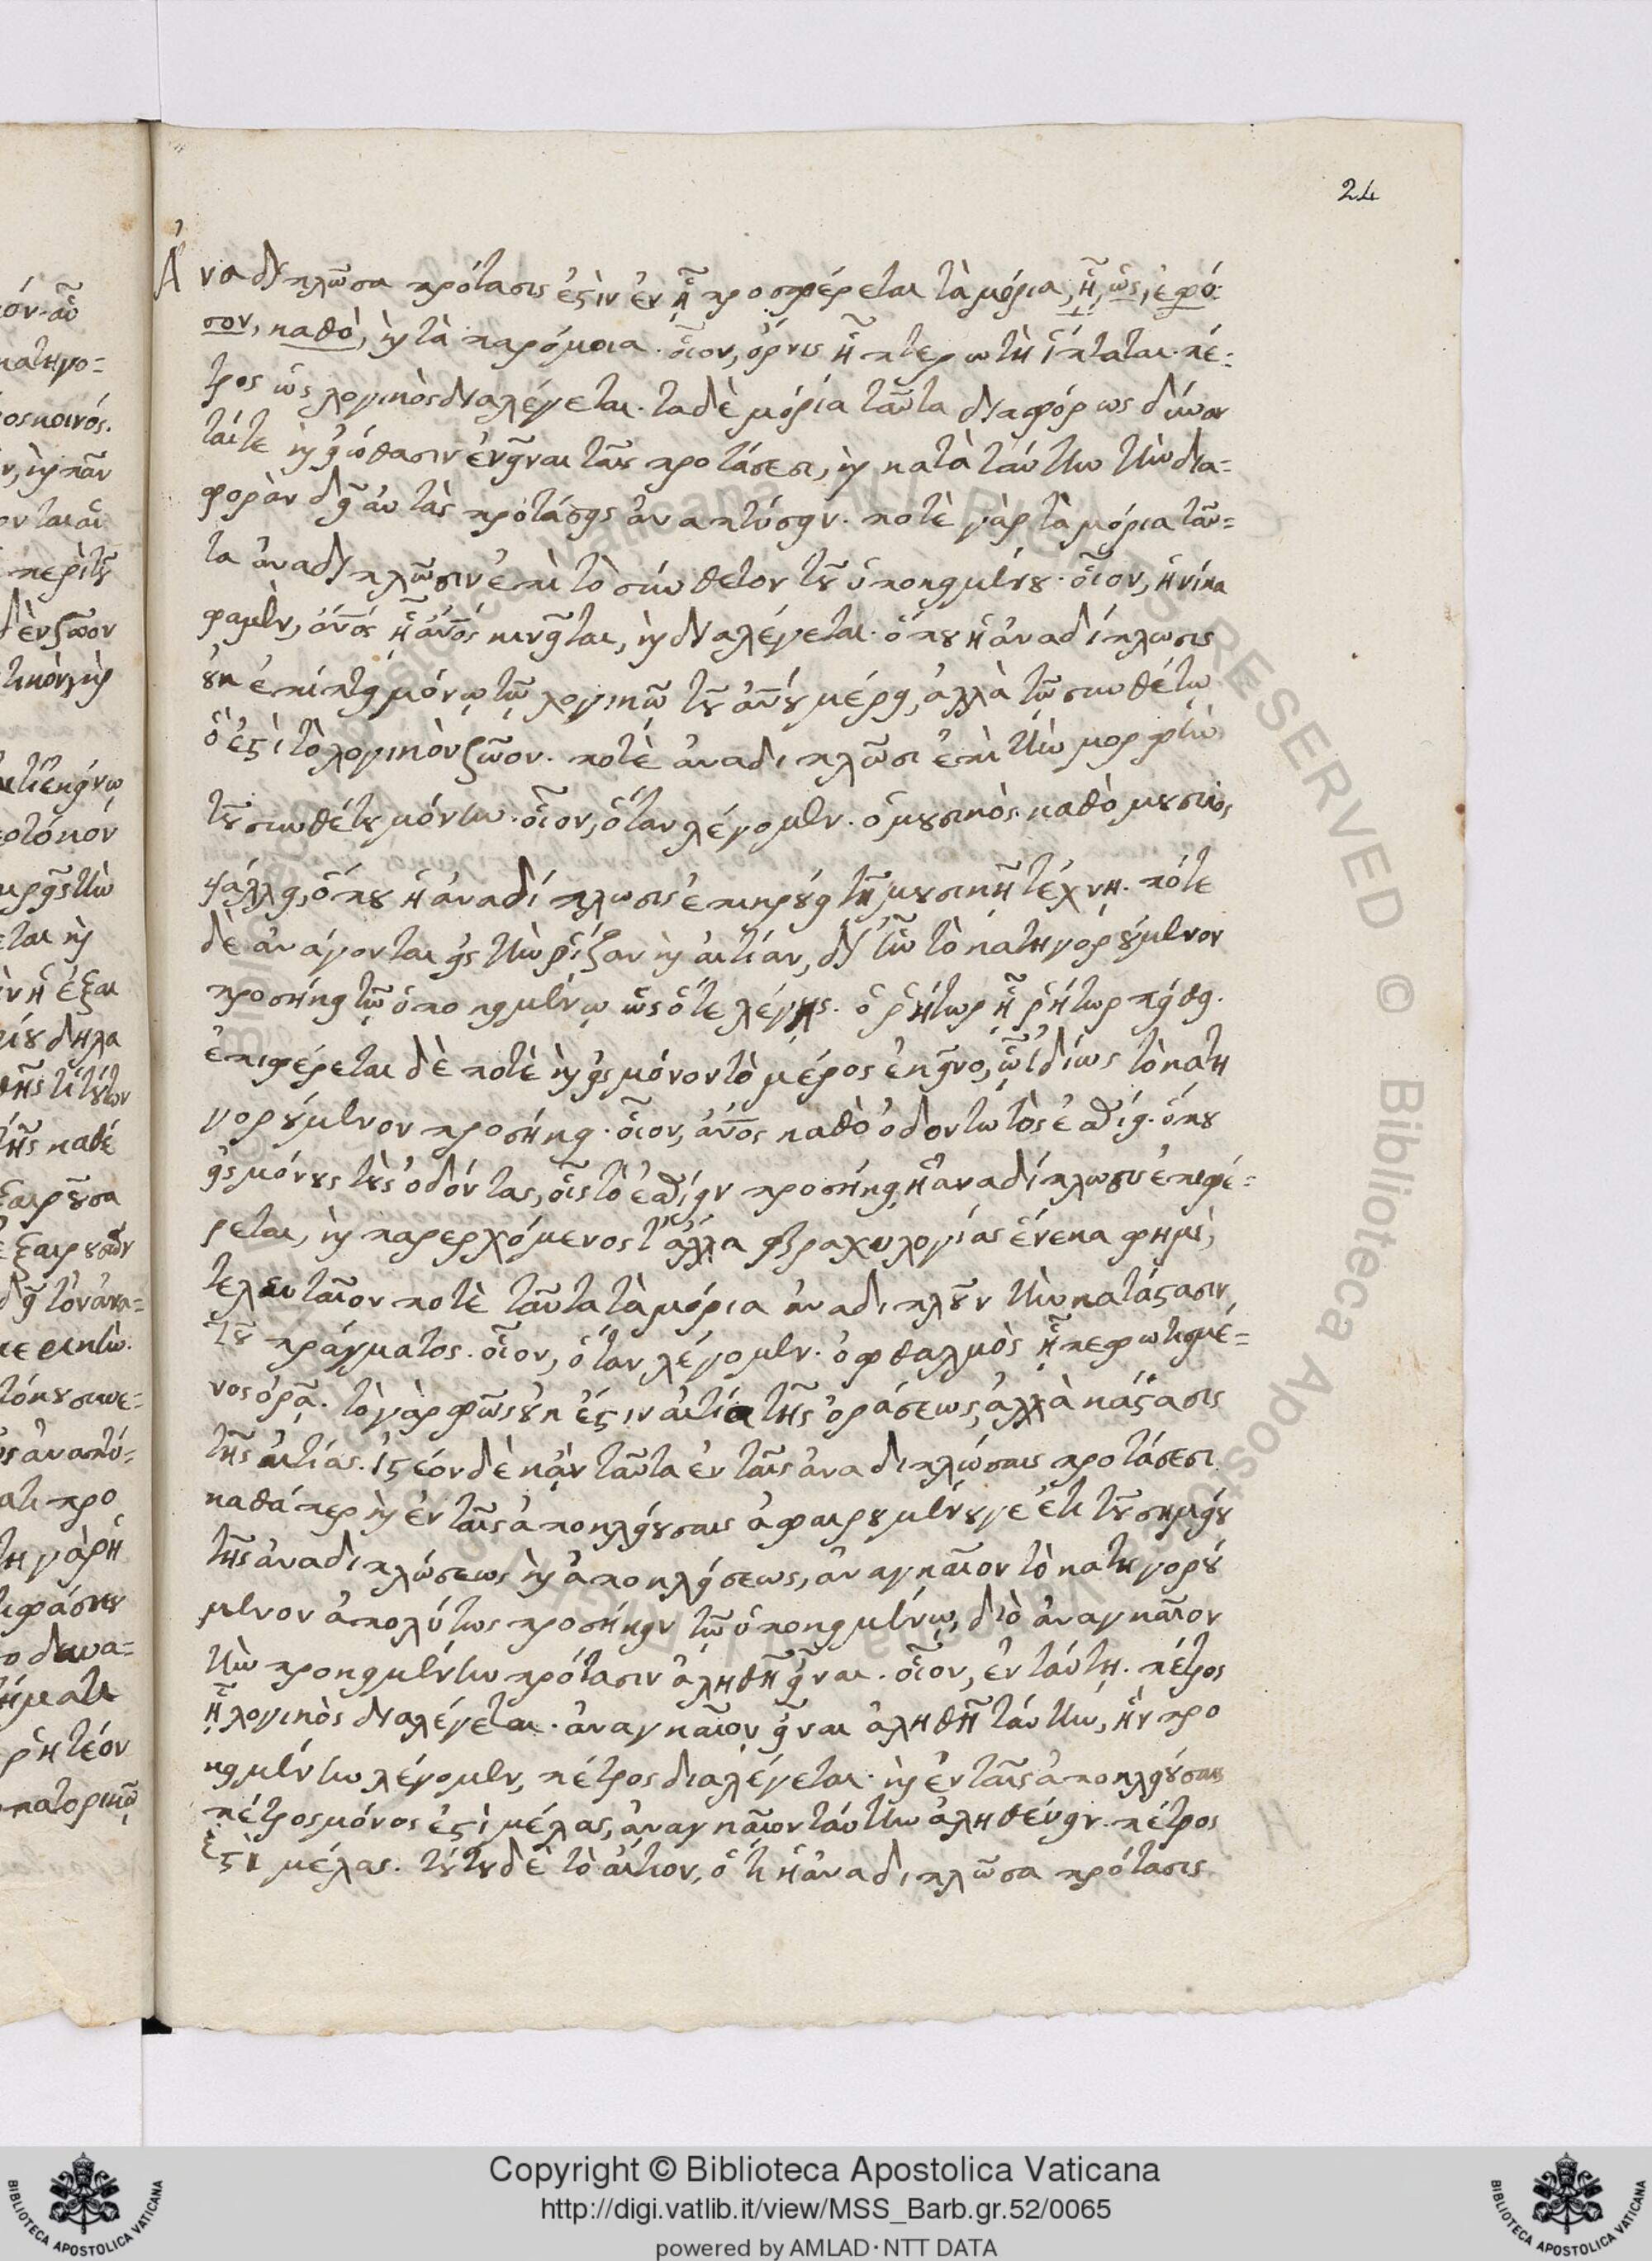 24
Ἀναδιπλῶσα πρότασις ἐστὶν ἐν ᾗ προσφέρεται τὰ μόρια, ᾗ, ὡς, ἐφό-
σον, καθὸ, καὶ τὰ παρόμοια. οἷον, ὄρνις ᾗ πτερωτὴ ἵπταται. πέ-
τρος ὡς λογικὸς διαλέγεται. τὰ δὲ μόρια ταῦτα διαφόρως δύναν
ταί τε καὶ εἰώθασιν ἐνεῖναι ταῖς προτάσεσι, καὶ κατὰ ταύτην τὴν δια-
φορὰν δεῖ αὐτὰς προτάσεις ἀναπτύσειν. ποτὲ γὰρ τὰ μόρια ταῦ-
τα ἀναδιπλῶσιν ἐπὶ τὸ σύνθετον τοῦ ὑποκειμένου. οἷον, ἡνίκα
φαμὲν, ἄνος ᾗ ἄνος κινεῖται, καὶ διαλέγεται. ὅπου ἡ ἀναδίπλωσις
οὐκ ἐπίπτει μόνῳ τῷ λογικῷ τοῦ ἀνου μέρει, ἀλλὰ τῷ συνθέτῳ
ὅ ἐστὶ τὸ λογικὸν ζῶον. ποτὲ ἀναδιπλῶσι ἐπὶ τὴν μορφὴν
τοῦ συνθέτου μόνην. οἷον, ὅταν λέγομεν. ὁ μουσικὸς καθὸ μουσικὸς
ψάλλει, ὅπου ἡ ἀναδίπλωσις ἐπικρούει τῇ μουσικῇ τέχνῃ. πότε
δὲ ἀνάγονται εἰς τὴν ῥίζαν καὶ αἰτίαν, δι' ἣν τὸ κατηγορούμενον
προσήκει τῷ ὑποκειμένῳ ὡς ὅτε λέγῃς. ὁ ῥήτωρ ᾗ ῥήτωρ πείθει.
ἐπιφέρεται δὲ ποτὲ καὶ εἰς μόνον τὸ μέρος ἐκεῖνο, ᾧ ἰδίως τὸ κατη
γορούμενον προσήκει. οἷον, ἄνος καθὸ ὀδοντωτὸς ἐσθίει. ὅπου
εἰς μόνους τοὺς ὀδόντας, οἷς τὸ ἐσθίειν προσήκει, ἡ ἀναδίπλωσις ἐπιφέ-
ρεται, καὶ παρερχόμενος τἄλλα βραχυλογίας ἕνεκα φημὶ,
τελευταῖον ποτὲ ταῦτα τὰ μόρια ἀναδιπλοῦν τὴν κατάστασιν
τοῦ πράγματος. οἷον, ὅταν λέγομεν. ὀφθαλμὸς ᾗ πεφωτισμέ-
νος ὁρᾷ. τὸ γὰρ φῶς οὐκ ἔστιν αἰτία τῆς ὁράσεως, ἀλλὰ κάστασις
τῆς αἰτίας. ἰστέον δὲ κἂν ταῦτα ἐν ταῖς ἀναδιπλώσαις προτάσεσι
καθάπερ καὶ ἐν ταῖς ἀποκλειούσαις ἀφαιρουμένου γε ἔτι τοῦ σημείου
τῆς ἀναδιπλώσεως καὶ ἀποκλείσεως, ἀναγκαῖον τὸ κατηγορού
μενον ἀπολύτως προσήκειν τῷ ὑποκειμένῳ, διὸ ἀναγκαῖον
τὴν προκειμένην πρότασιν ἀληθῆ εἶναι. οἷον, ἐν ταύτῃ. πέτρος
ᾗ λογικὸς διαλέγεται. ἀναγκαῖον εἶναι ἀληθῆ ταύτην, ἣν προ
κειμένην λέγομεν, πέτρος διαλέγεται. καὶ ἐν ταῖς ἀποκλειούσαις
πέτρος μόνος ἐστὶ μέλας, ἀναγκαῖον ταύτην ἀληθεύειν. πέτρος
ἐστὶ μέλας. τούτου δὲ τὸ αἴτιον, ὅτι ἡ ἀναδιπλῶσα πρότασις
Copyright © Biblioteca Apostolica Vaticana
http://digi.vatlib.it/view/MSS_Barb.gr.52/0065
powered by AMLAD·NTT DATA